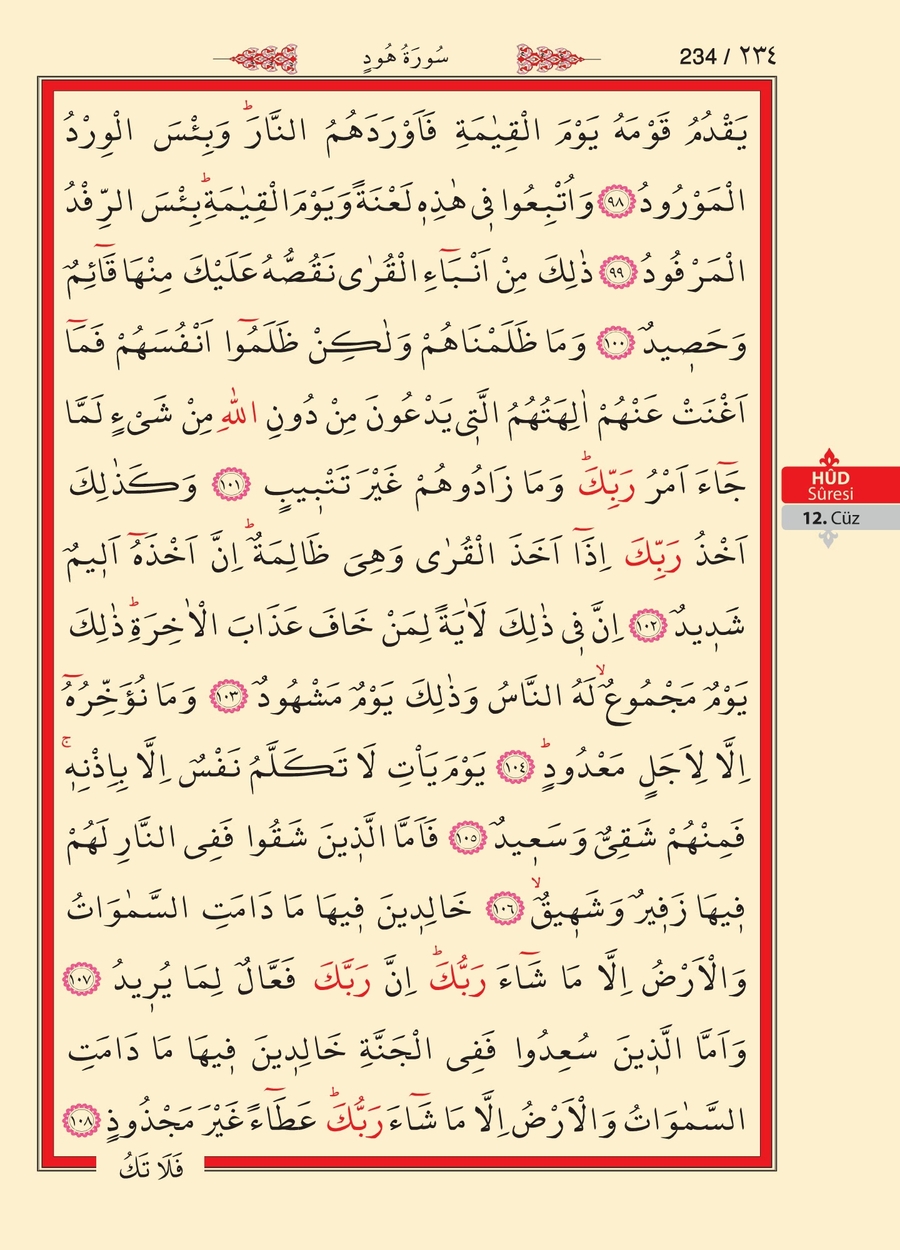 سُورَةُ هُودٍ
234 / ٢٣٤
يَقْدُمُ قَوْمَهُ يَوْمَ الْقِيٰمَةِ فَاَوْرَدَهُمُ النَّارَۜ وَبِئْسَ الْوِرْدُ
الْمَوْرُودُ ﴿٩٨﴾ وَاُتْبِعُوا ف۪ي هٰذِه۪ لَعْنَةً وَيَوْمَ الْقِيٰمَةِۜ بِئْسَ الرِّفْدُ
الْمَرْفُودُ ﴿٩٩﴾ ذٰلِكَ مِنْ اَنْبَٓاءِ الْقُرٰى نَقُصُّهُ عَلَيْكَ مِنْهَا قَٓائِمٌ
وَحَص۪يدٌ ﴿١٠٠﴾ وَمَا ظَلَمْنَاهُمْ وَلٰكِنْ ظَلَمُٓوا اَنْفُسَهُمْ فَمَٓا
اَغْنَتْ عَنْهُمْ اٰلِهَتُهُمُ الَّت۪ي يَدْعُونَ مِنْ دُونِ اللّٰهِ مِنْ شَيْءٍ لَمَّا
جَٓاءَ اَمْرُ رَبِّكَۜ وَمَا زَادُوهُمْ غَيْرَ تَتْب۪يبٍ ﴿١٠١﴾ وَكَذٰلِكَ
اَخْذُ رَبِّكَ اِذَٓا اَخَذَ الْقُرٰى وَهِيَ ظَالِمَةٌۜ اِنَّ اَخْذَهُٓ اَل۪يمٌ
شَد۪يدٌ ﴿١٠٢﴾ اِنَّ ف۪ي ذٰلِكَ لَاٰيَةً لِمَنْ خَافَ عَذَابَ الْاٰخِرَةِۜ ذٰلِكَ
يَوْمٌ مَجْمُوعٌۙ لَهُ النَّاسُ وَذٰلِكَ يَوْمٌ مَشْهُودٌ ﴿١٠٣﴾ وَمَا نُؤَخِّرُهُٓ
اِلَّا لِاَجَلٍ مَعْدُودٍۜ ﴿١٠٤﴾ يَوْمَ يَأْتِ لَا تَكَلَّمُ نَفْسٌ اِلَّا بِاِذْنِه۪ۚ
فَمِنْهُمْ شَقِيٌّ وَسَع۪يدٌ ﴿١٠٥﴾ فَاَمَّا الَّذ۪ينَ شَقُوا فَفِي النَّارِ لَهُمْ
ف۪يهَا زَف۪يرٌ وَشَه۪يقٌۙ ﴿١٠٦﴾ خَالِد۪ينَ ف۪يهَا مَا دَامَتِ السَّمٰوَاتُ
وَالْاَرْضُ اِلَّا مَا شَٓاءَ رَبُّكَۜ اِنَّ رَبَّكَ فَعَّالٌ لِمَا يُر۪يدُ ﴿١٠٧﴾
وَاَمَّا الَّذ۪ينَ سُعِدُوا فَفِي الْجَنَّةِ خَالِد۪ينَ ف۪يهَا مَا دَامَتِ
السَّمٰوَاتُ وَالْاَرْضُ اِلَّا مَا شَٓاءَ رَبُّكَۜ عَطَٓاءً غَيْرَ مَجْذُوذٍ ﴿١٠٨﴾
فَلَا تَكُ
HÛD
Sûresi
12. Cüz